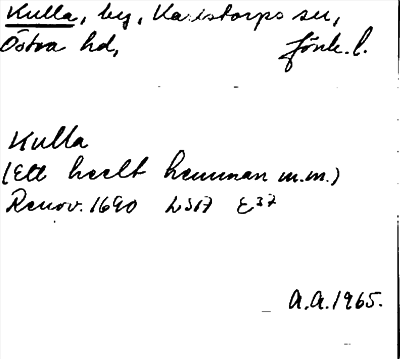 Kulla, by, Karstorps sn,
Östra hd, Jönk. l.
Kulla
(Ett heelt hemman m.m.)
Renov. 1690 LSA E37
A.A. 1965.